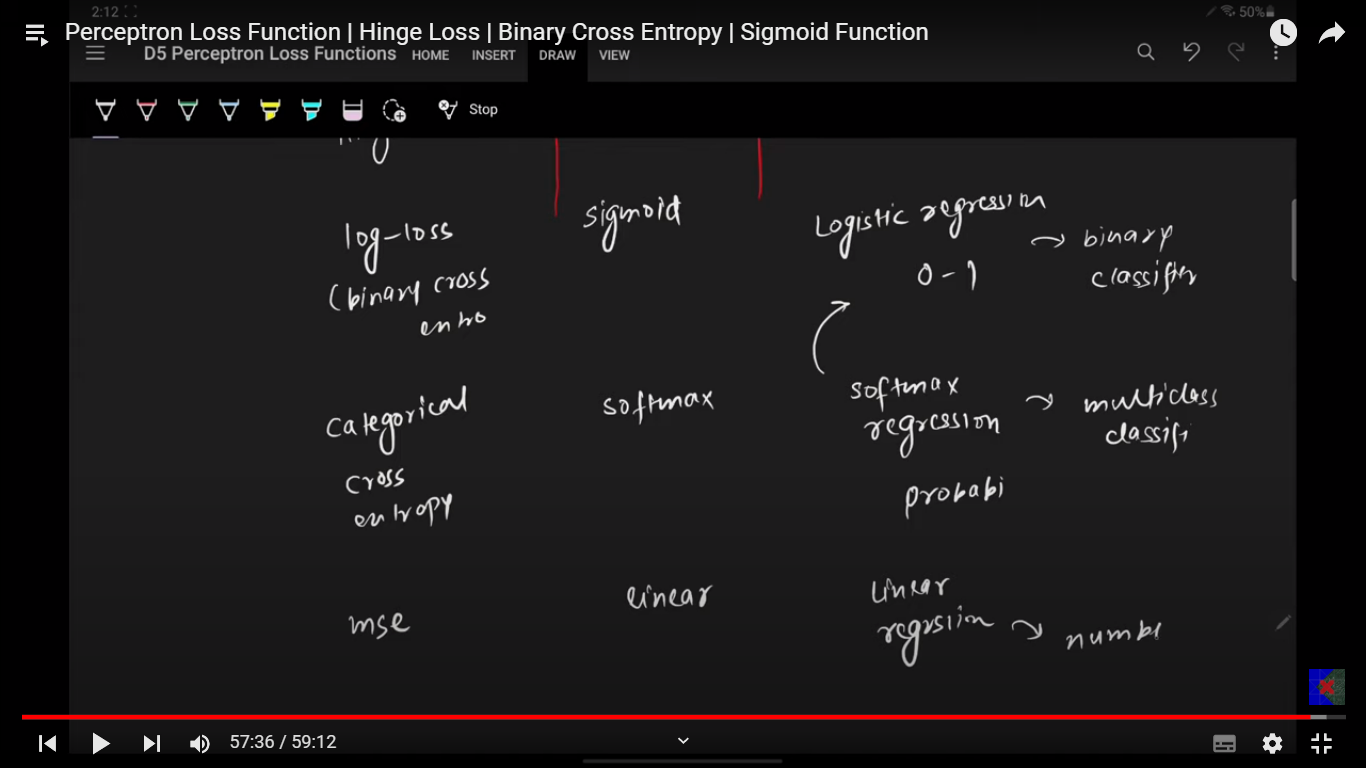 2:12
50%
Perceptron Loss Function | Hinge Loss | Binary Cross Entropy | Sigmoid Function
D5 Perceptron Loss Functions HOME INSERT DRAW VIEW
Stop
log-loss
(binary cross
entro
sigmoid
Logistic regression
0 - 1
binary
classifier
categorical
cross
entropy
softmax
softmax
regression
probabi
multiclass
classifi
mse
linear
linear
numbe
57:36 / 59:12